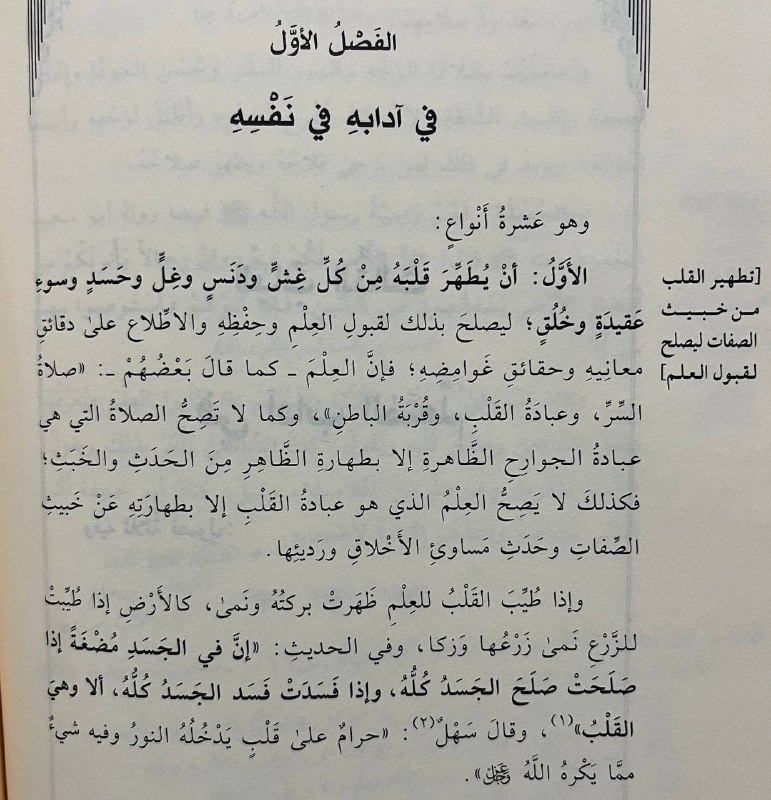 الفَصْلُ الأوَّلُ
في آدابهِ في نَفْسِهِ
وهو عَشرةُ أَنْواعٍ:
الأَوَّلُ: أنْ يُطَهِّرَ قَلْبَهُ مِنْ كُلِّ غِشٍّ ودَنَسٍ وغِلٍّ وحَسَدٍ وسوءِ
عَقيدَةٍ وخُلُقٍ؛ ليصلحَ بذلك لقبولِ العِلْمِ وحِفْظِهِ والاطِّلاع على دقائقِ
معانِيهِ وحقائقِ غَوامِضِهِ؛ فإنَّ العِلْمَ ـ كما قالَ بَعْضُهُمْ ـ: «صلاةُ
السِّرِّ، وعبادَةُ القَلْبِ، وقُرْبَةُ الباطنِ»، وكما لا تَصِحُّ الصلاةُ التي هي
عبادةُ الجوارحِ الظَّاهرةِ إلا بطهارةِ الظَّاهِرِ مِنَ الحَدَثِ والخَبَثِ؛
فكذلكَ لا يَصِحُّ العِلْمُ الذي هو عبادةُ القَلْبِ إلا بطهارَتِهِ عَنْ خَبيثِ
الصِّفاتِ وحَدَثِ مَساوئِ الأَخْلاقِ ورَديئِها.
[تطهير القلب
من خبيث
الصفات ليصلح
لقبول العلم]
وإذا طُيِّبَ القَلْبُ للعِلْمِ ظَهَرَتْ بركتُهُ ونَمىٰ، كالأَرْضِ إذا طُيِّبتْ
للزَّرْعِ نَمىٰ زَرْعُها وَزكا، وفي الحديثِ: «إنَّ في الجَسَدِ مُضْغَةً إذا
صَلَحَتْ صَلَحَ الجَسَدُ كُلُّهُ، وإذا فَسَدَتْ فَسَد الجَسَدُ كُلُّهُ، ألا وهيَ
القَلْبُ»(١)، وقالَ سَهْلٌ(٢): «حرامٌ علىٰ قَلْبٍ يَدْخُلُهُ النورُ وفيه شيءٌ
ممَّا يَكْرهُ اللَّهُ عَزَّ وَجَلَّ».